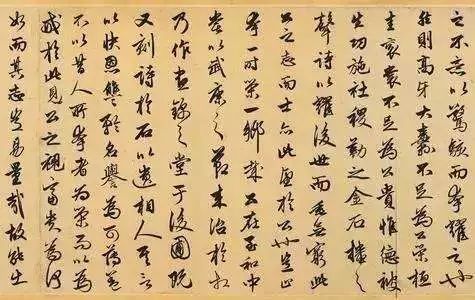 之不意以驚駭而夸耀之也
然則高牙大纛不足為公榮桓
圭袞裳不足為公貴惟德被
生功施社稷勒之金石播之
聲詩以耀後世而垂無窮此
公之志而士亦此望於公也豈止
夸一時榮一鄉哉公在至和中
嘗以武康之節來治於相
乃作晝錦之堂于後圃既
又刻詩於石以遺相人其言
以快恩讎矜名譽為可薄蓋
不以昔人所夸者為榮而以為
戒於此見公之視富貴為何
如而其志豈易量哉故能出